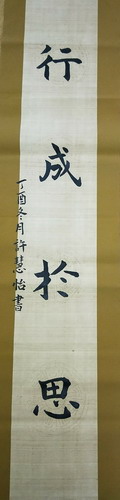 行成於思
丁酉冬月許慧怡書